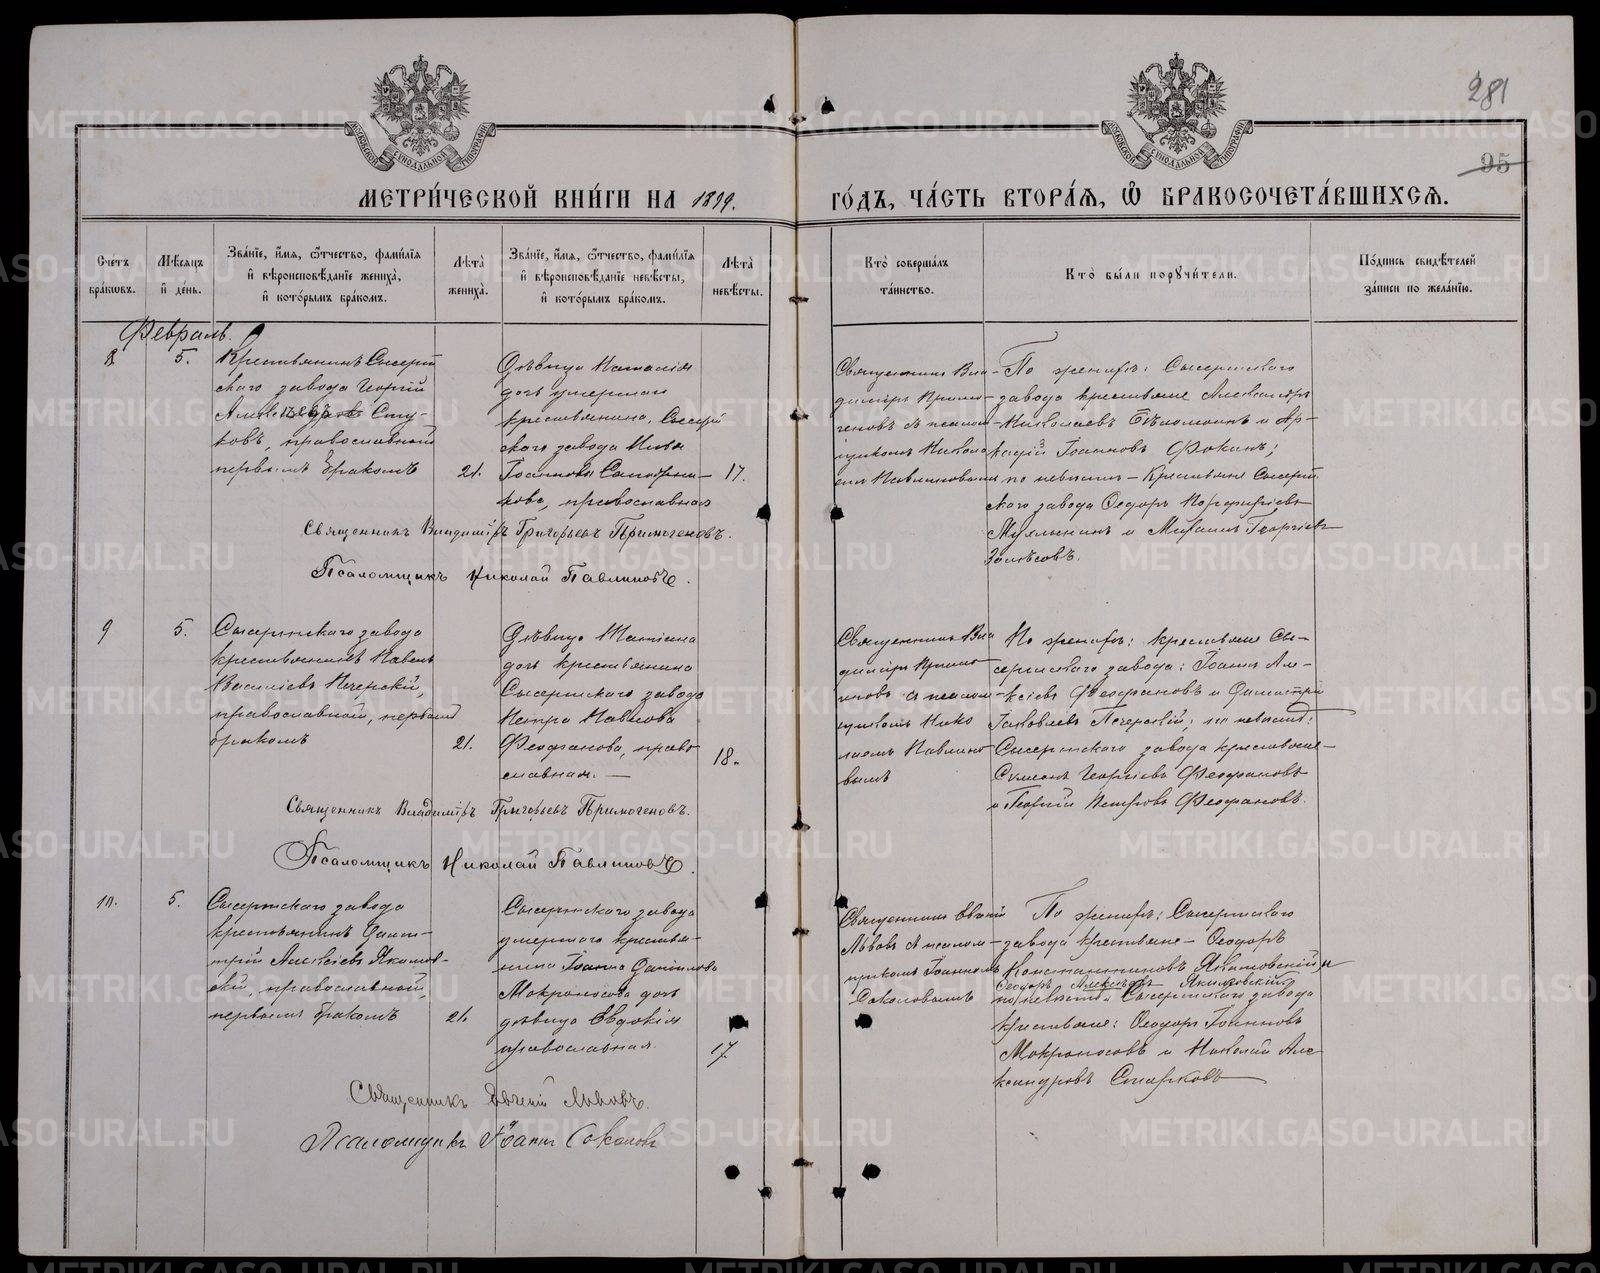 281
95
МОСКОВСКОЙ СѴНОДАЛЬНОЙ ТИПОГРАФІИ
МОСКОВСКОЙ СѴНОДАЛЬНОЙ ТИПОГРАФІИ
МЕТРИ́ЧЕСКОЙ КНИ́ГИ НА 1899.
ГО́ДЪ, ЧА́СТЬ ВТОРА́Я, Ѿ БРАКОСОЧЕТА́ВШИХСЯ.
Сче́тъ бра́ковъ.
Мѣ́сяцъ и де́нь.
Зва́нїе, и́мя, ѻ́тчество, фами́лїя и вѣроисповѣ́данїе жениха̀, и кото́рымъ бра́комъ.
Лѣта̀ жениха̀.
Зва́нїе, и́мя, ѻ́тчество, фами́лїя и вѣроисповѣ́данїе невѣ́сты, и кото́рымъ бра́комъ.
Лѣта̀ невѣ́сты.
Кто̀ соверша́лъ та́инство.
Кто̀ бы́ли порꙋчи́тели.
По́дпись свидѣ́телей за́писи по жела́нїю.
Февраль.
8
5.
Крестьянинъ Сысерт
скаго завода Георгій
Сту-
ковъ, православный
первымъ бракомъ
21.
Дѣвица Наталія
дочь умершаго
крестьянина, Сысерт
скаго завода
Іоаннова
кова, православная
17.
Священникъ Вла-
диміръ Примо-
геновъ съ псалом-
щикомъ Никола
емъ Павлиновымъ
По женихѣ: Сысертскаго
завода крестьяне Александръ
Николаевъ и Ар-
кадій Іоанновъ Фокинъ;
по невѣстѣ – Крестьяне Сысерт
скаго завода Ѳеодоръ Порфирьевъ
и Михаилъ Георгіевъ
Священникъ Владиміръ Григорьевъ Примогеновъ.
Псаломщикъ Николай Павлиновъ.
9
5.
Сысертскаго завода
крестьянинъ Павелъ
Василіевъ Печерскій,
православный, первымъ
бракомъ
21.
Дѣвица Татіана
дочь крестьянина
Сысертскаго завода
Петра Павлова
Феофанова, право
славная. —
18.
Священникъ Вла
диміръ Примо
геновъ съ псалом
щикомъ Нико
лаемъ Павлино
вымъ
По женихѣ: крестьяне Сы-
сертскаго завода: Іоаннъ Ал-
ксіевъ Феофановъ и Димитрій
Іаковлевъ Печерскій; по невѣстѣ:
Сысертскаго завода крестьяне –
Симеонъ Георгіевъ Феофановъ
и Георгій Петровъ Феофановъ.
Священникъ Владиміръ Григорьевъ Примогеновъ.
Псаломщикъ Николай Павлиновъ.
10.
5.
Сысертскаго завода
крестьянинъ Дими-
трій Алексіевъ Якимов-
скій, православный,
первымъ бракомъ
21.
Сысертскаго завода
умершаго крестья-
нина Іоанна Даніилова
Мокроносова дочь
дѣвица Евдокія
православная.
17
Священникъ Евгеній
Львовъ съ псалом-
щикомъ Іоанномъ
Соколовымъ
По женихѣ: Сысертскаго
завода крестьяне – Ѳеодоръ
Константиновъ Якимовскій и
Ѳеодоръ Алексѣевъ Якимовскій
по невѣстѣ: Сысертскаго завода
крестьяне: Ѳеодоръ Іоанновъ
Мокроносовъ и Николай Але
ксандровъ Старковъ
Священникъ Евгеній Львовъ.
Псаломщикъ Іоаннъ Соколовъ
METRIKI.GASO-URAL.RU